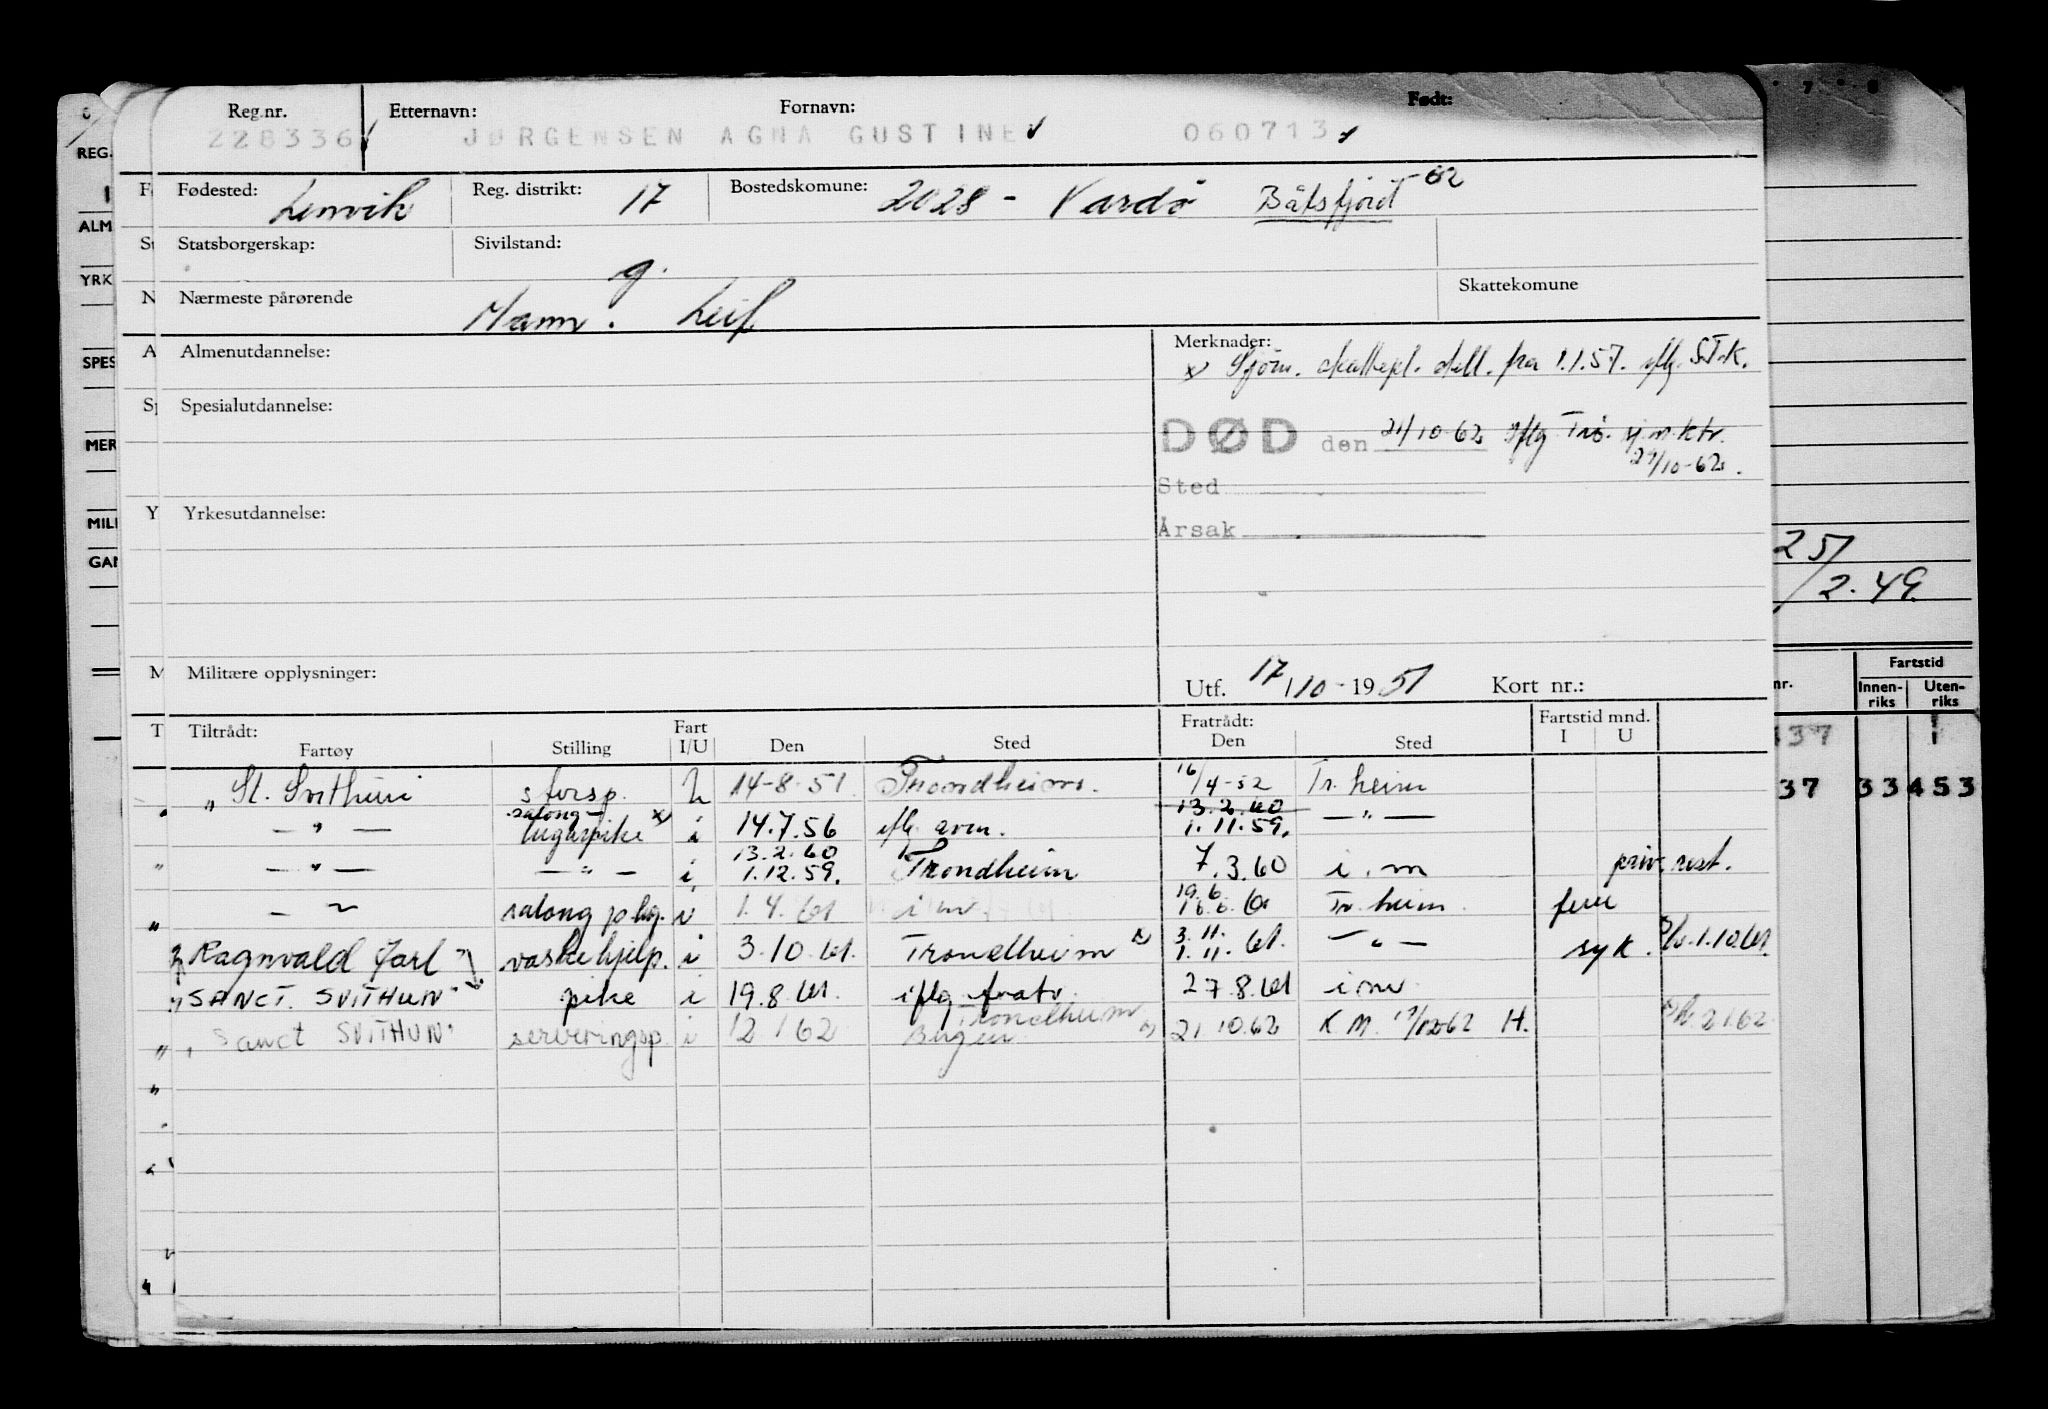 Reg.nr. Etternavn: Fornavn: Født:
228336 JØRGENSEN AGNA GUSTINE 060713
Fødested: Lenvik Reg. distrikt: 17 Bostedskomune: 2028 - Vardø Båtsfjord -62
Statsborgerskap: Sivilstand: g.
Nærmeste pårørende Mann. Leif Skattekomune
Almenutdannelse: Merknader:
x Sjøm. skattepl. still. fra 1.1.57. iflg. S.T.K.
Spesialutdannelse:
DØD den 21/10-62 iflg Trø. sj.m.ktr.
29/10-62.
Sted
Yrkesutdannelse:
Årsak
Militære opplysninger: Utf. 17/10-1951 Kort nr.:
Tiltrådt: Fart Fratrådt: Fartstid mnd.
Fartøy Stilling I/U Den Sted Den Sted I U
" St. Svithun 14-8-51 Trondheim. 16/4-52 Tr.heim
salong- 13.2.60
— " — lugarpike x) i 14.7.56 iflg. 1.11.59. — " —
13.2.60
— " — — " — i 1.12.59. Trondheim 7.3.60 i.m priv. rest.
19.6.
— " — salong i 1.4.61 i m 16.6.61 Tr.heim. ferie
3.11.
Ragnvald Jarl vaskehjelp. i 3.10.61. Trondheim x) 1.11.61. — " — syk. 1.10.61.
"SANCT. SVITHUN" pike i 19.8.61. iflg fratr. 27.8.61 i m
Trondheim
"Sanct SVITHUN" serveringsp. i 12 1 62 Bergen 21.10.62 K.M. H. 2 1 62
REG.
ALM
YRK
SPES
MER
MILI
GAN
25/
/2.49
Fartstid
nr. Innen-riks Uten-riks
37 1
37 33 453